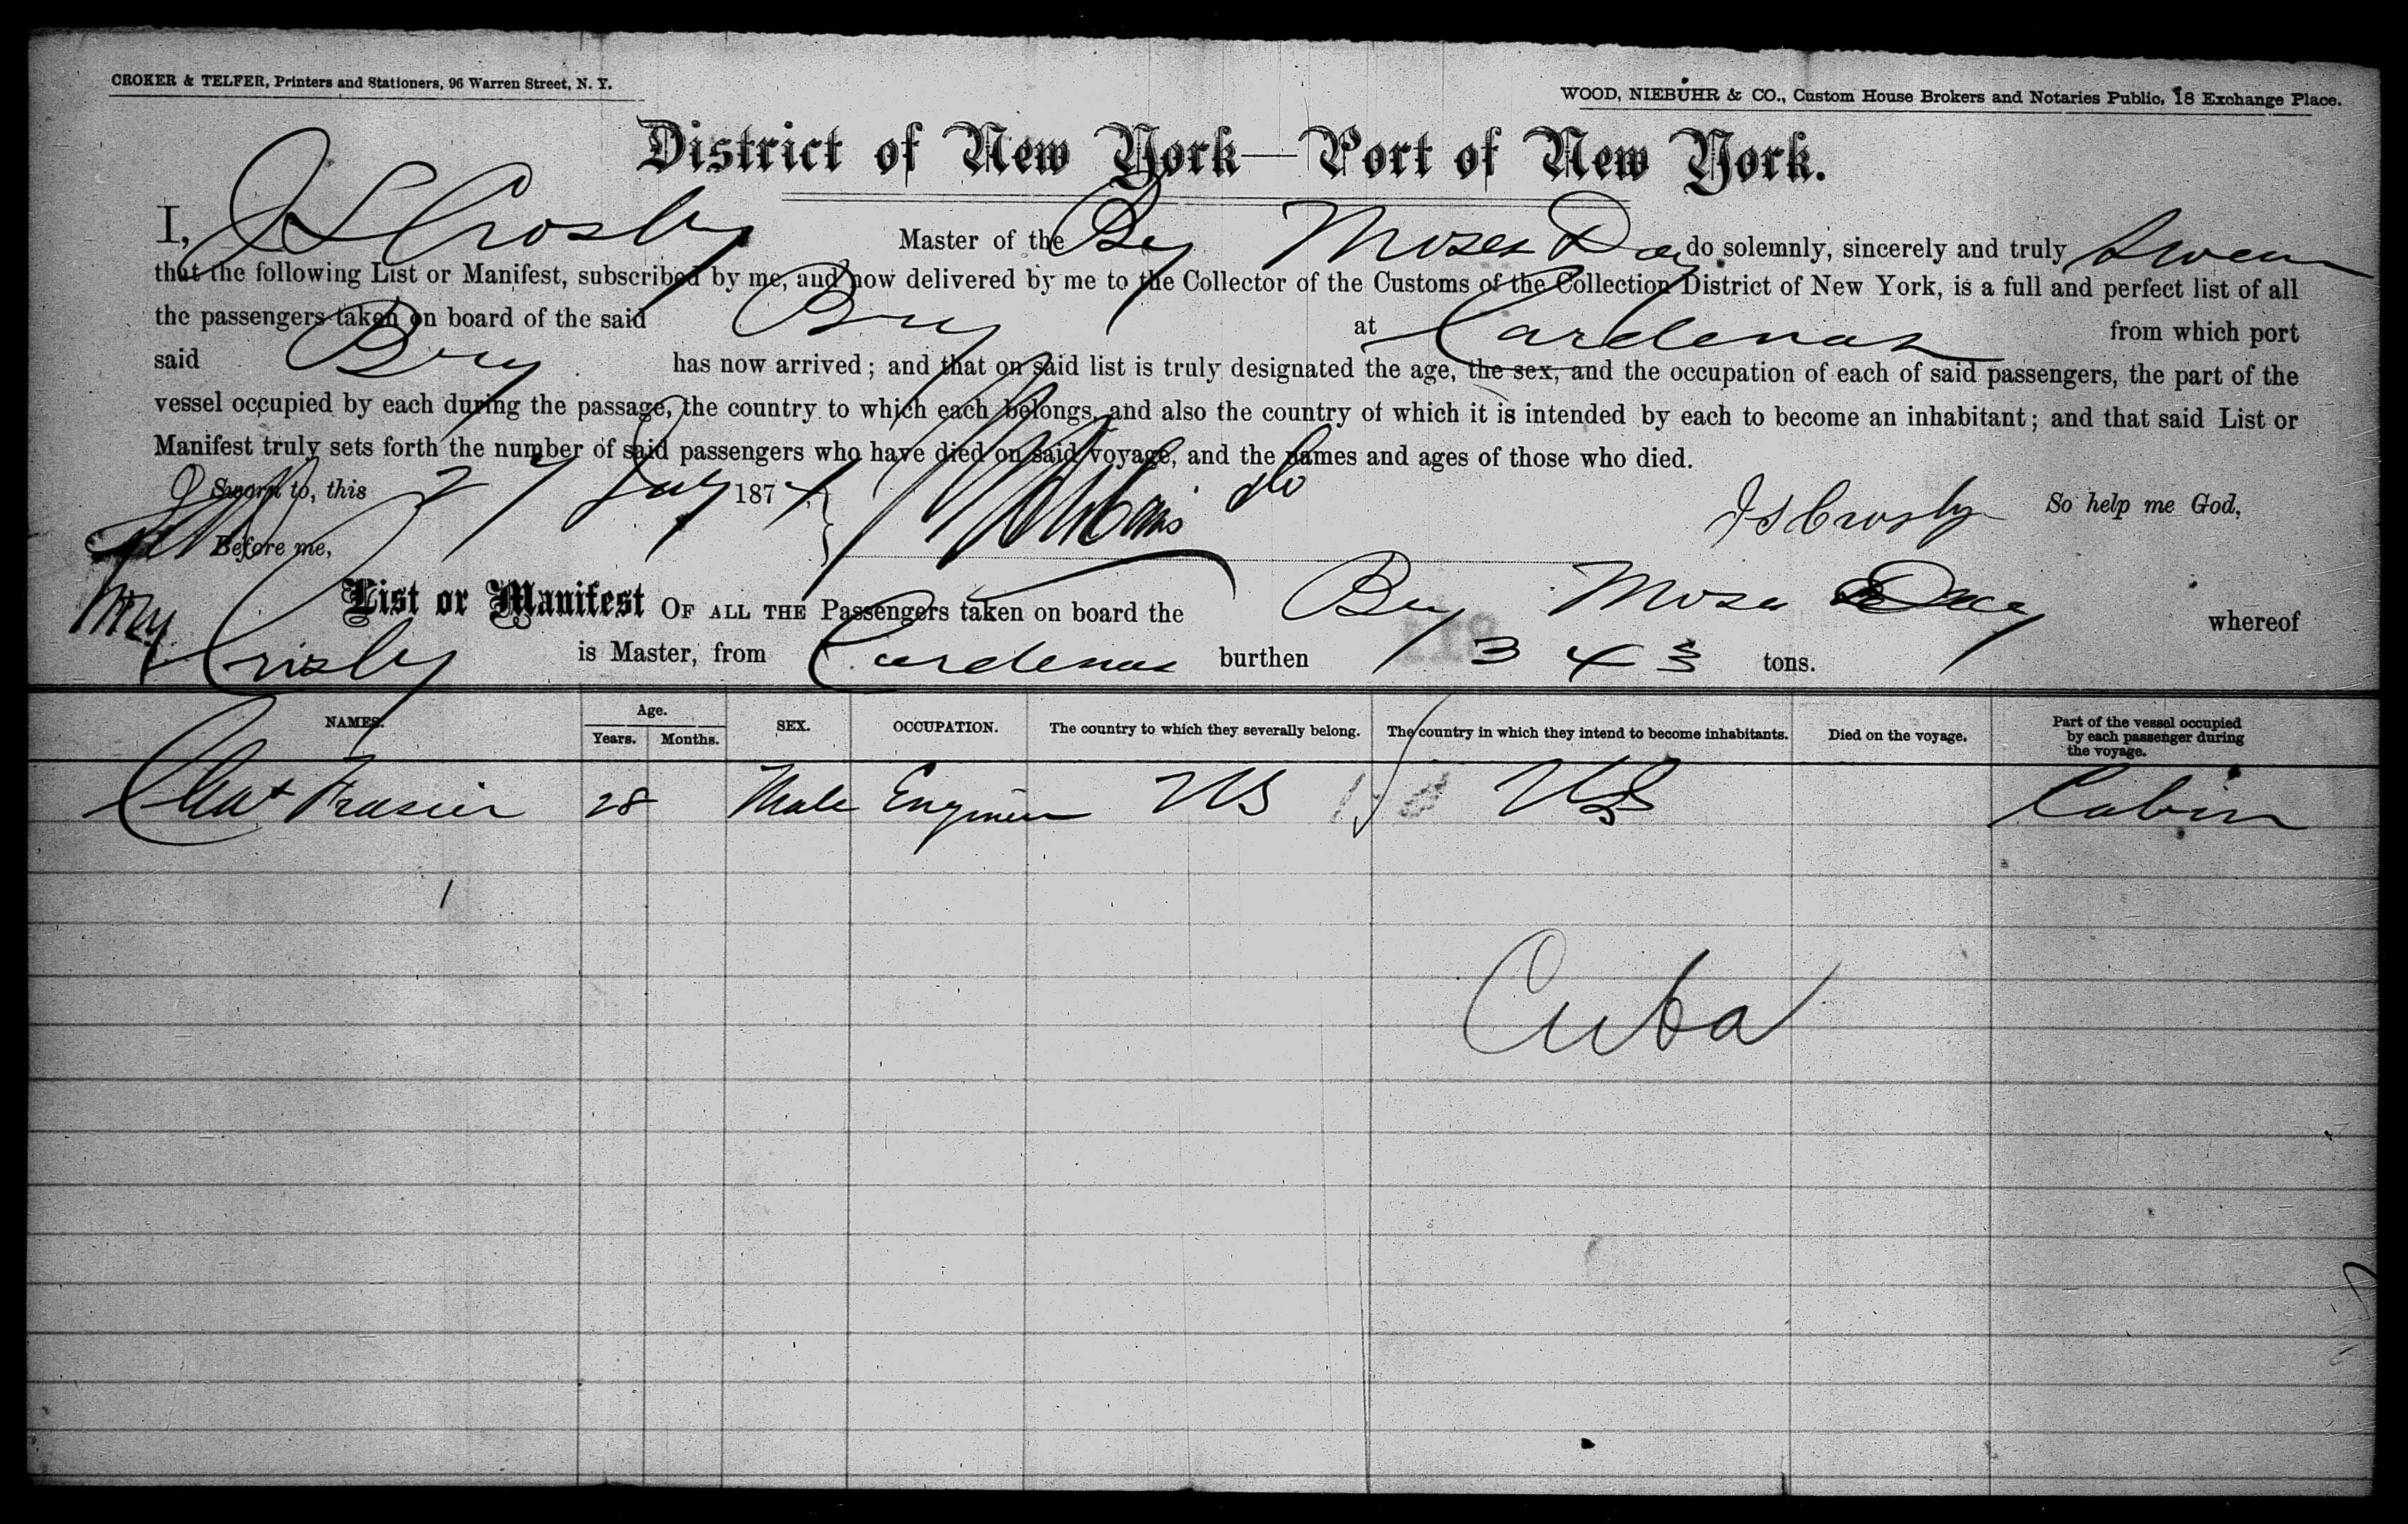 CROKER & TELFER, Printers and Stationers, 96 Warren Street, N. Y.
WOOD, NIEBUHR & CO., Custom House Brokers and Notaries Public, 18 Exchange Place.
District of New York—Port of New York.
I, J S Crosby Master of the Brig Moses Day do solemnly, sincerely and truly Swear
that the following List or Manifest, subscribed by me, and now delivered by me to the Collector of the Customs of the Collection District of New York, is a full and perfect list of all
the passengers taken on board of the said Brig at Cardenas from which port
said Brig has now arrived; and that on said list is truly designated the age, the sex, and the occupation of each of said passengers, the part of the
vessel occupied by each during the passage, the country to which each belongs, and also the country of which it is intended by each to become an inhabitant; and that said List or
Manifest truly sets forth the number of said passengers who have died on said voyage, and the names and ages of those who died.
Sworn to, this 27 July 187 J S Crosby So help me God,
Before me,
List or Manifest OF ALL THE Passengers taken on board the Brig Moses Day whereof
Crosby is Master, from Cardenas burthen 343 tons.
NAMES. Age. Years. Months. SEX. OCCUPATION. The country to which they severally belong. The country in which they intend to become inhabitants. Died on the voyage. Part of the vessel occupied by each passenger during the voyage.
Chas Frasier 28 Male Engineer US US Cabin
1
Cuba